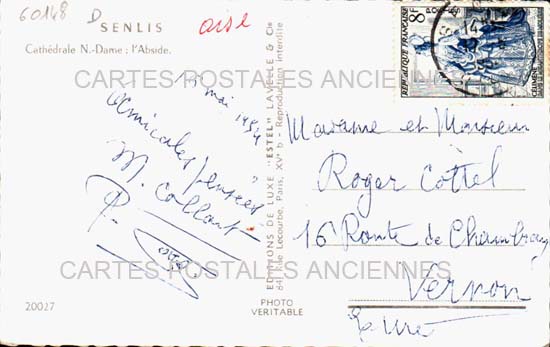 60148 D
SENLIS
Oise
Cathédrale N.-Dame ; l'Abside.
CARTES POSTALES ANCIENNES
mai 1954
Amicales pensées
M. Collant
P.
20027
EDITIONS DE LUXE "ESTEL" LAVELLE & Cie
64, Rue Lecourbe, Paris, XVe - Reproduction interdite
PHOTO
VERITABLE
8F
POSTES
REPUBLIQUE FRANÇAISE
CELIMENE
Madame et Monsieur
Roger Cottel
16 Route de Chambray
Vernon
Eure
CARTES POSTALES ANCIENNES